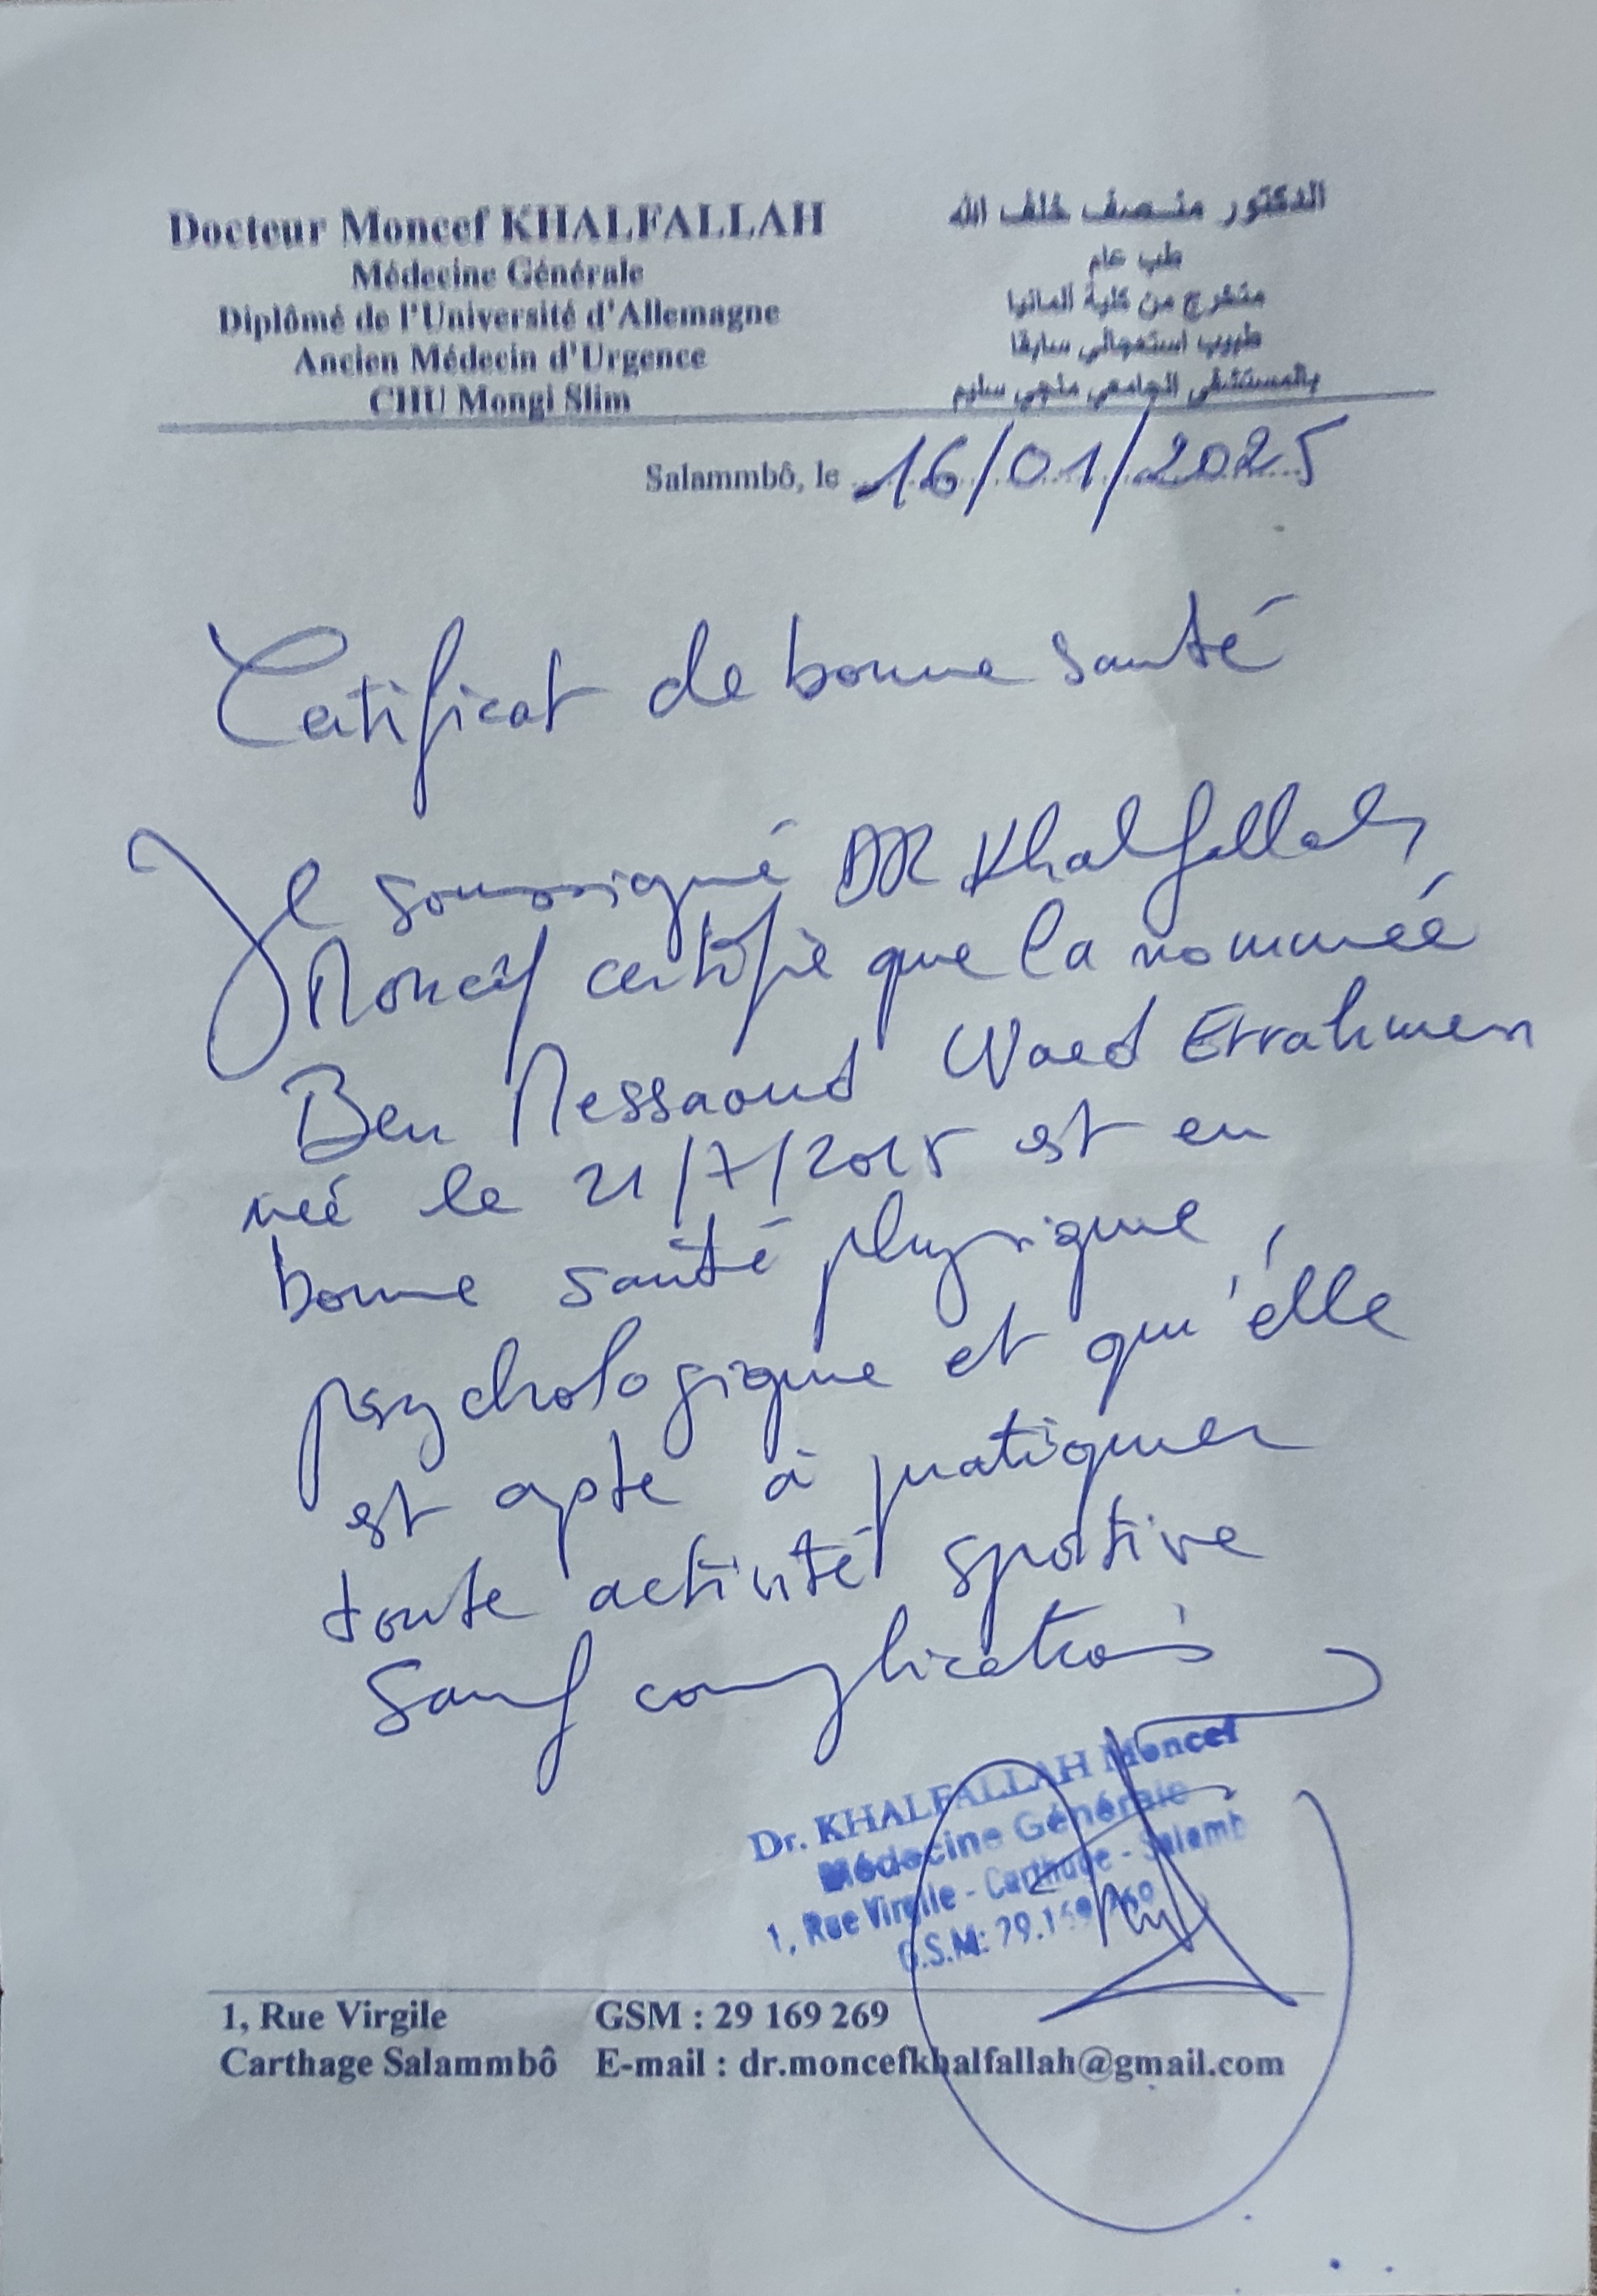 Docteur Moncef KHALFALLAH
Médecine Générale
Diplômé de l'Université d'Allemagne
Ancien Médecin d'Urgence
CHU Mongi Slim
الدكتور منصف خلف الله
طب عام
متخرج من كلية ألمانيا
طبيب استعجالي سابقا
بالمستشفى الجامعي منجي سليم
Salammbô, le 16/01/2025
Certificat de bonne santé
Je soussigné DR Khalfallah
Moncef certifie que la nommée
Ben Messaoud Waed Errahmen
née le 21/7/2015 est en
bonne santé physique,
psychologique et qu'élle
est apte à pratiquer
toute activité sportive
Sauf complications
Dr. KHALFALLAH Moncef
Médecine Générale
1, Rue Virgile - Carthage - Salamb
G.S.M: 29.169
1, Rue Virgile
Carthage Salammbô
GSM : 29 169 269
E-mail : dr.moncefkhalfallah@gmail.com